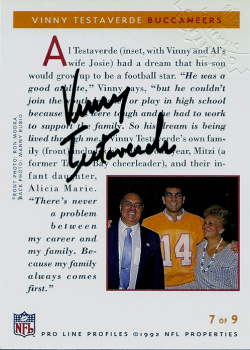 VINNY TESTAVERDE BUCCANEERS
Al Testaverde (inset, with Vinny and Al's
wife Josie) had a dream that his son
would grow up to be a football star. "He was a
good a te," Vinny says, "but he couldn't
join the or play in high school
because were tough and he had to work
to support the family. So his dream is being
lived through me." Testaverde's own fam-
ily (front Mitzi (a
former T Bay cheerleader), and their in-
fant daughter,
Alicia Marie.
"There's never
a problem
between
my career and
my family. Be-
cause my family
always comes
first."
Vinny
Testaverde
FRONT PHOTO: BOB MOORA
BACK PHOTO: MANNY RUBIO
14
7 of 9
NFL
PRO LINE PROFILES ©1992 NFL PROPERTIES